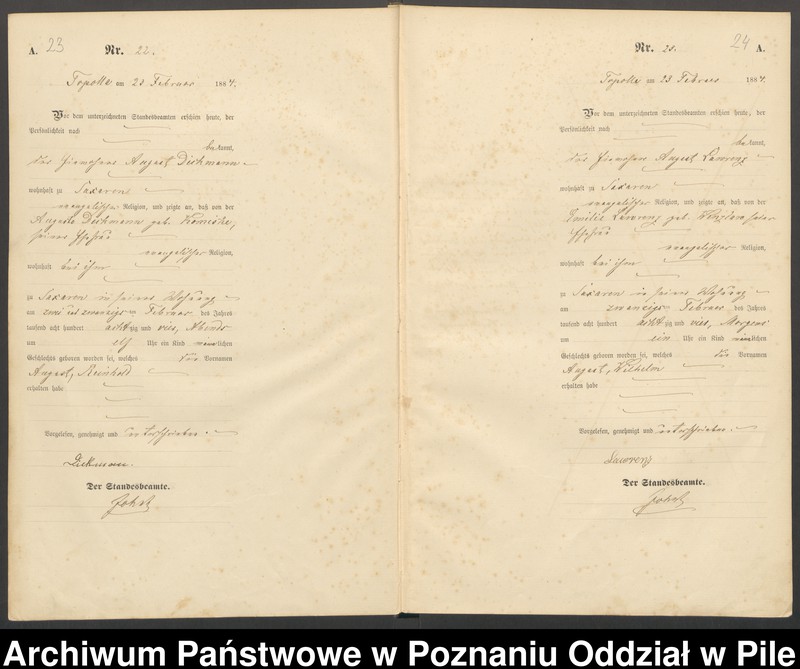 A. 23 Nr. 22.
Topolla am 23 Februar 1884.
Vor dem unterzeichneten Standesbeamten erschien heute, der
Persönlichkeit nach
bekannt,
der August Dickmann
wohnhaft zu Saxaren
evangelischer Religion, und zeigte an, daß von der
Auguste Dickmann geb.
seiner Ehefrau
evangelischer Religion,
wohnhaft bei ihm
zu Saxaren in seiner Wohnung
am zwei und zwanzigsten Februar des Jahres
tausend acht hundert achtzig und vier, Abends
um elf Uhr ein Kind männlichen
Geschlechts geboren worden sei, welches die Vornamen
August, Reinhold
erhalten habe
Vorgelesen, genehmigt und unterschrieben.
Dickmann.
Der Standesbeamte.
Nr. 24 A.
Topolla am 23 Februar 1884.
Vor dem unterzeichneten Standesbeamten erschien heute, der
Persönlichkeit nach
bekannt,
der August Lawrenz
wohnhaft zu Saxaren
evangelischer Religion, und zeigte an, daß von der
Emilie Lawrenz geb. seiner
Ehefrau
evangelischer Religion,
wohnhaft bei ihm
zu Saxaren in seiner Wohnung
am zwanzigsten Februar des Jahres
tausend acht hundert achtzig und vier, Morgens
um ein Uhr ein Kind männlichen
Geschlechts geboren worden sei, welches die Vornamen
August, Wilhelm
erhalten habe
Vorgelesen, genehmigt und unterschrieben.
Lawrenz
Der Standesbeamte.
Archiwum Państwowe w Poznaniu Oddział w Pile